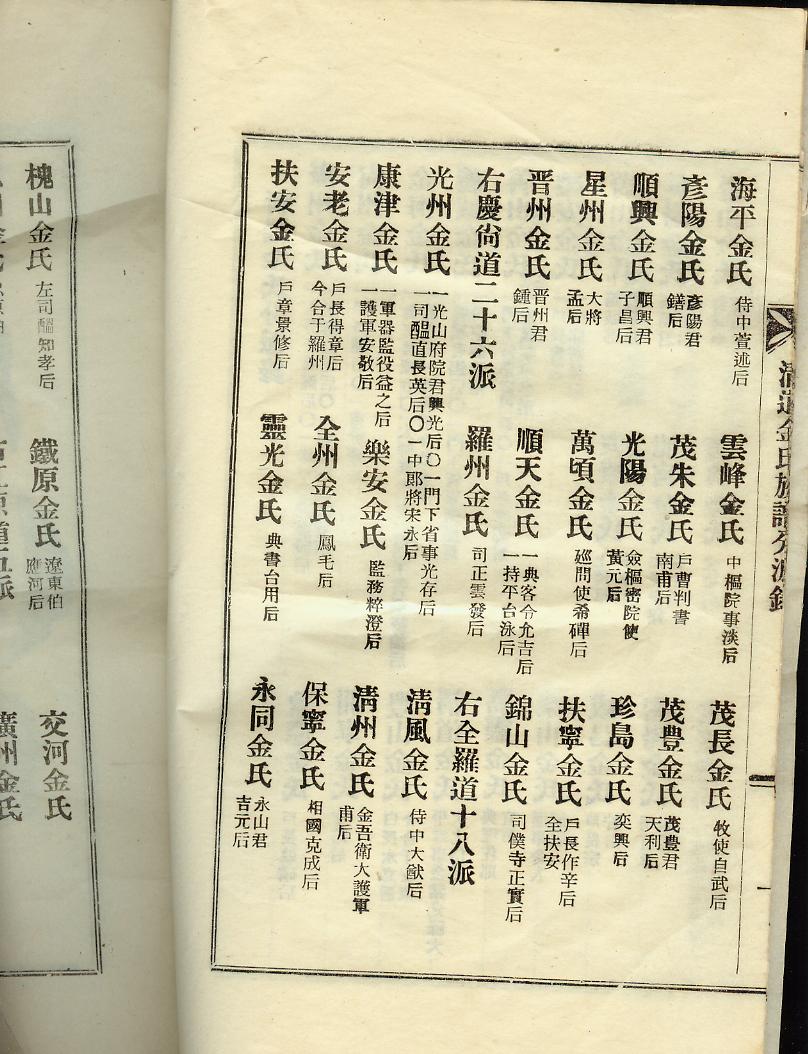 淸道金氏族譜分派錄
一
海平金氏 侍中萱述后
彥陽金氏 彥陽君鐥后
順興金氏 順興君子昌后
星州金氏 大將孟后
晋州金氏 晋州君鍾后
右慶尙道二十六派
光州金氏 一光山府院君興光后〇一門下省事光存后 一司醞直長英后〇一中郞將宋永后
康津金氏 一軍器監役益之后 一護軍安敬后
安老金氏 戶長得章后 今合于羅州
扶安金氏 戶章景修后
雲峰金氏 中樞院事淡后
茂朱金氏 戶曹判書南甫后
光陽金氏 僉樞密院使黃元后
萬頃金氏 廵問使希磾后
順天金氏 一典客令允吉后 一持平台泳后
羅州金氏 司正雲發后
樂安金氏 監務粹澄后
全州金氏 鳳毛后
靈光金氏 典書台用后
茂長金氏 牧使自武后
茂豊金氏 茂豊君天利后
珍島金氏 奕興后
扶寧金氏 戶長作辛后 全扶安
錦山金氏 司僕寺正實后
右全羅道十八派
淸風金氏 侍中大猷后
淸州金氏 金吾衛大護軍甫后
保寧金氏 相國克成后
永同金氏 永山君吉元后
槐山金氏 左司醞知孝后
鐵原金氏 遼東伯應河后
交河金氏
原道五派
廣州金氏